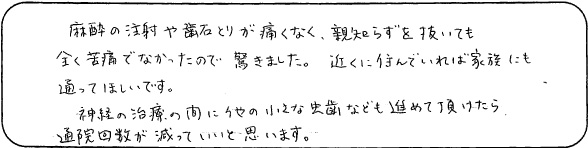 麻酔の注射や歯石とりが痛くなく、親知らずを抜いても
全く苦痛でなかったので驚きました。近くに住んでいれば家族にも
通ってほしいです。
神経の治療の間に他の小さな虫歯なども進めて頂けたら
通院回数が減っていいと思います。